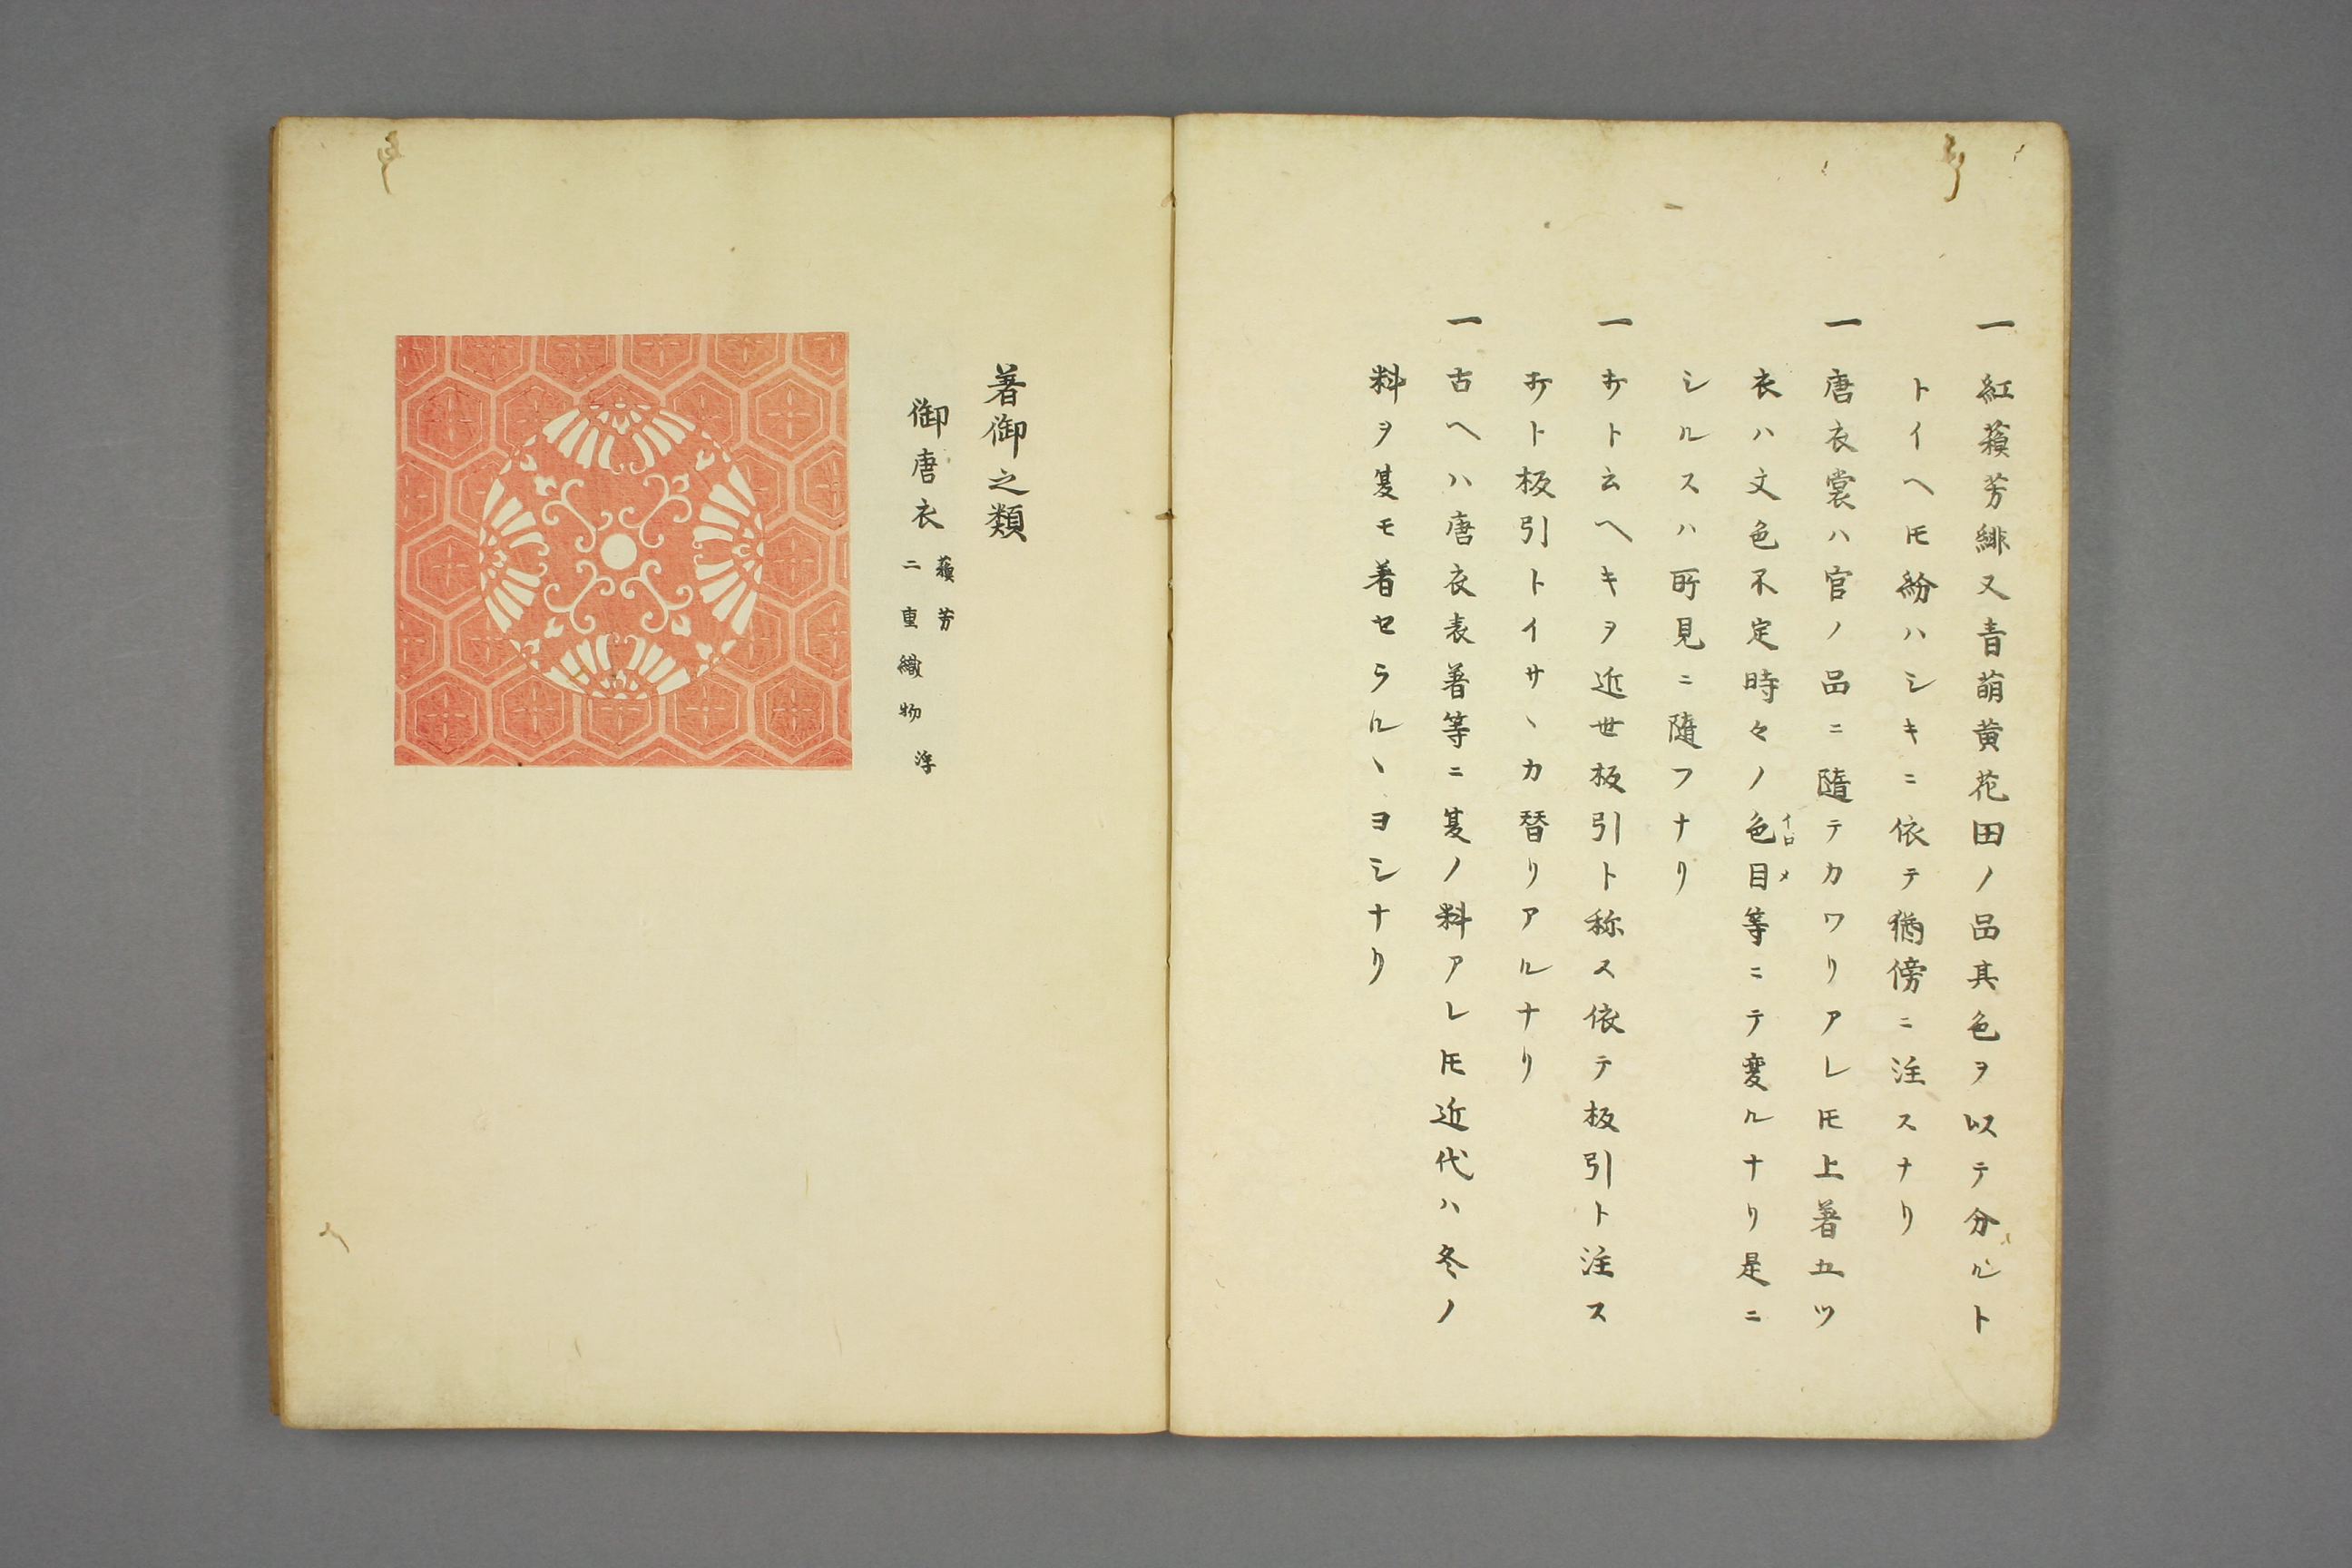 一紅蘓芳緋又青萠黄花田ノ品其色ヲ以テ分ルト
トイヘ𪜈紛ハシキニ依テ猶傍ニ注スナリ
一唐衣裳ハ官ノ品ニ隨テカワリアレ𪜈上著五ツ
衣ハ文色不定時々ノ色目等ニテ変ルナリ是ニ
イロメ
シルスハ所見ニ隨フナリ
一オトムヘキヲ近世板引ト称ス依テ板引ト注ス
オト板引トイサヽカ替リアルナリ
一古ヘハ唐衣表著等ニ夏ノ料アレ𪜈近代ハ冬ノ
料ヲ夏モ著セラルヽヨシナリ
著御之類
御唐衣
蘓芳
二重織物 浮